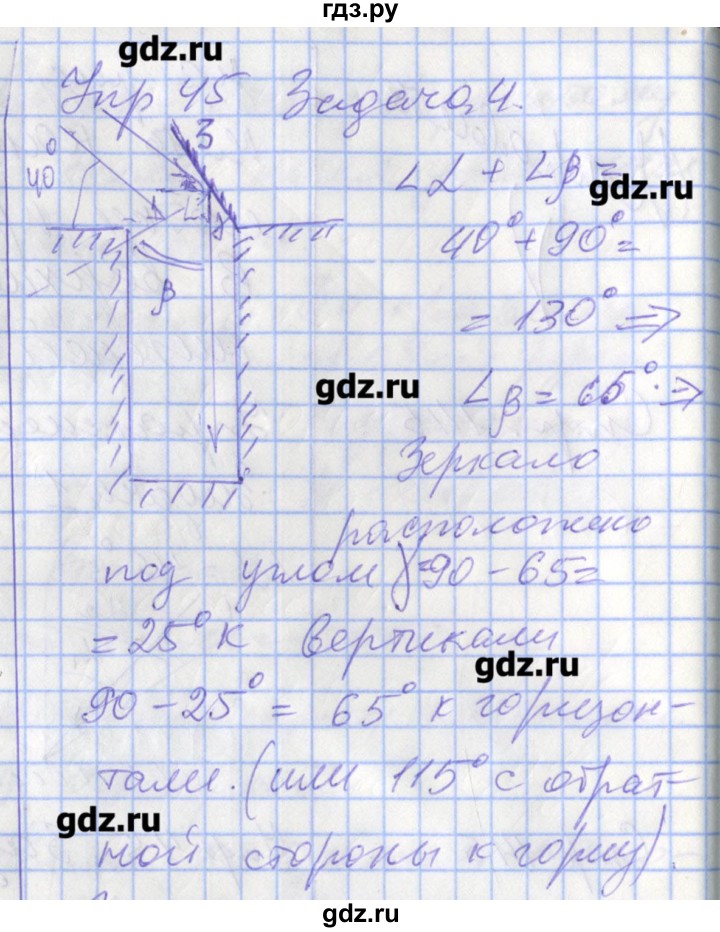 гдз.ру
gdz.ru
Упр 45 Задача 4.
З
40°
β
∠α + ∠β =
gdz.ru
40° + 90° =
= 130° ⇒
gdz.ru
∠β = 65° ⇒
Зеркало
расположено
под углом γ = 90 - 65 =
= 25° к вертикали
gdz.ru
90 - 25° = 65° к горизон-
тали. (или 115° с обрат-
gdz.ru
ной стороны к гориз)
gdz.ru